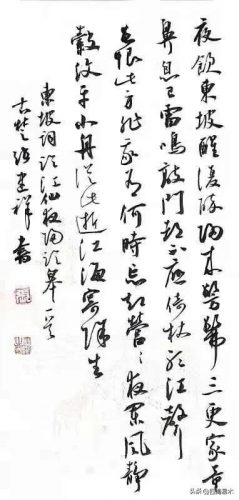 夜飲東坡醒復醉歸來髣髴三更家童
鼻息已雷鳴敲門都不應倚杖聽江聲
長恨此身非我有何時忘却營々夜闌風靜
縠紋平小舟從此逝江海寄餘生
東坡詞臨江仙夜歸臨皋一首
古楚張建祥書
头条